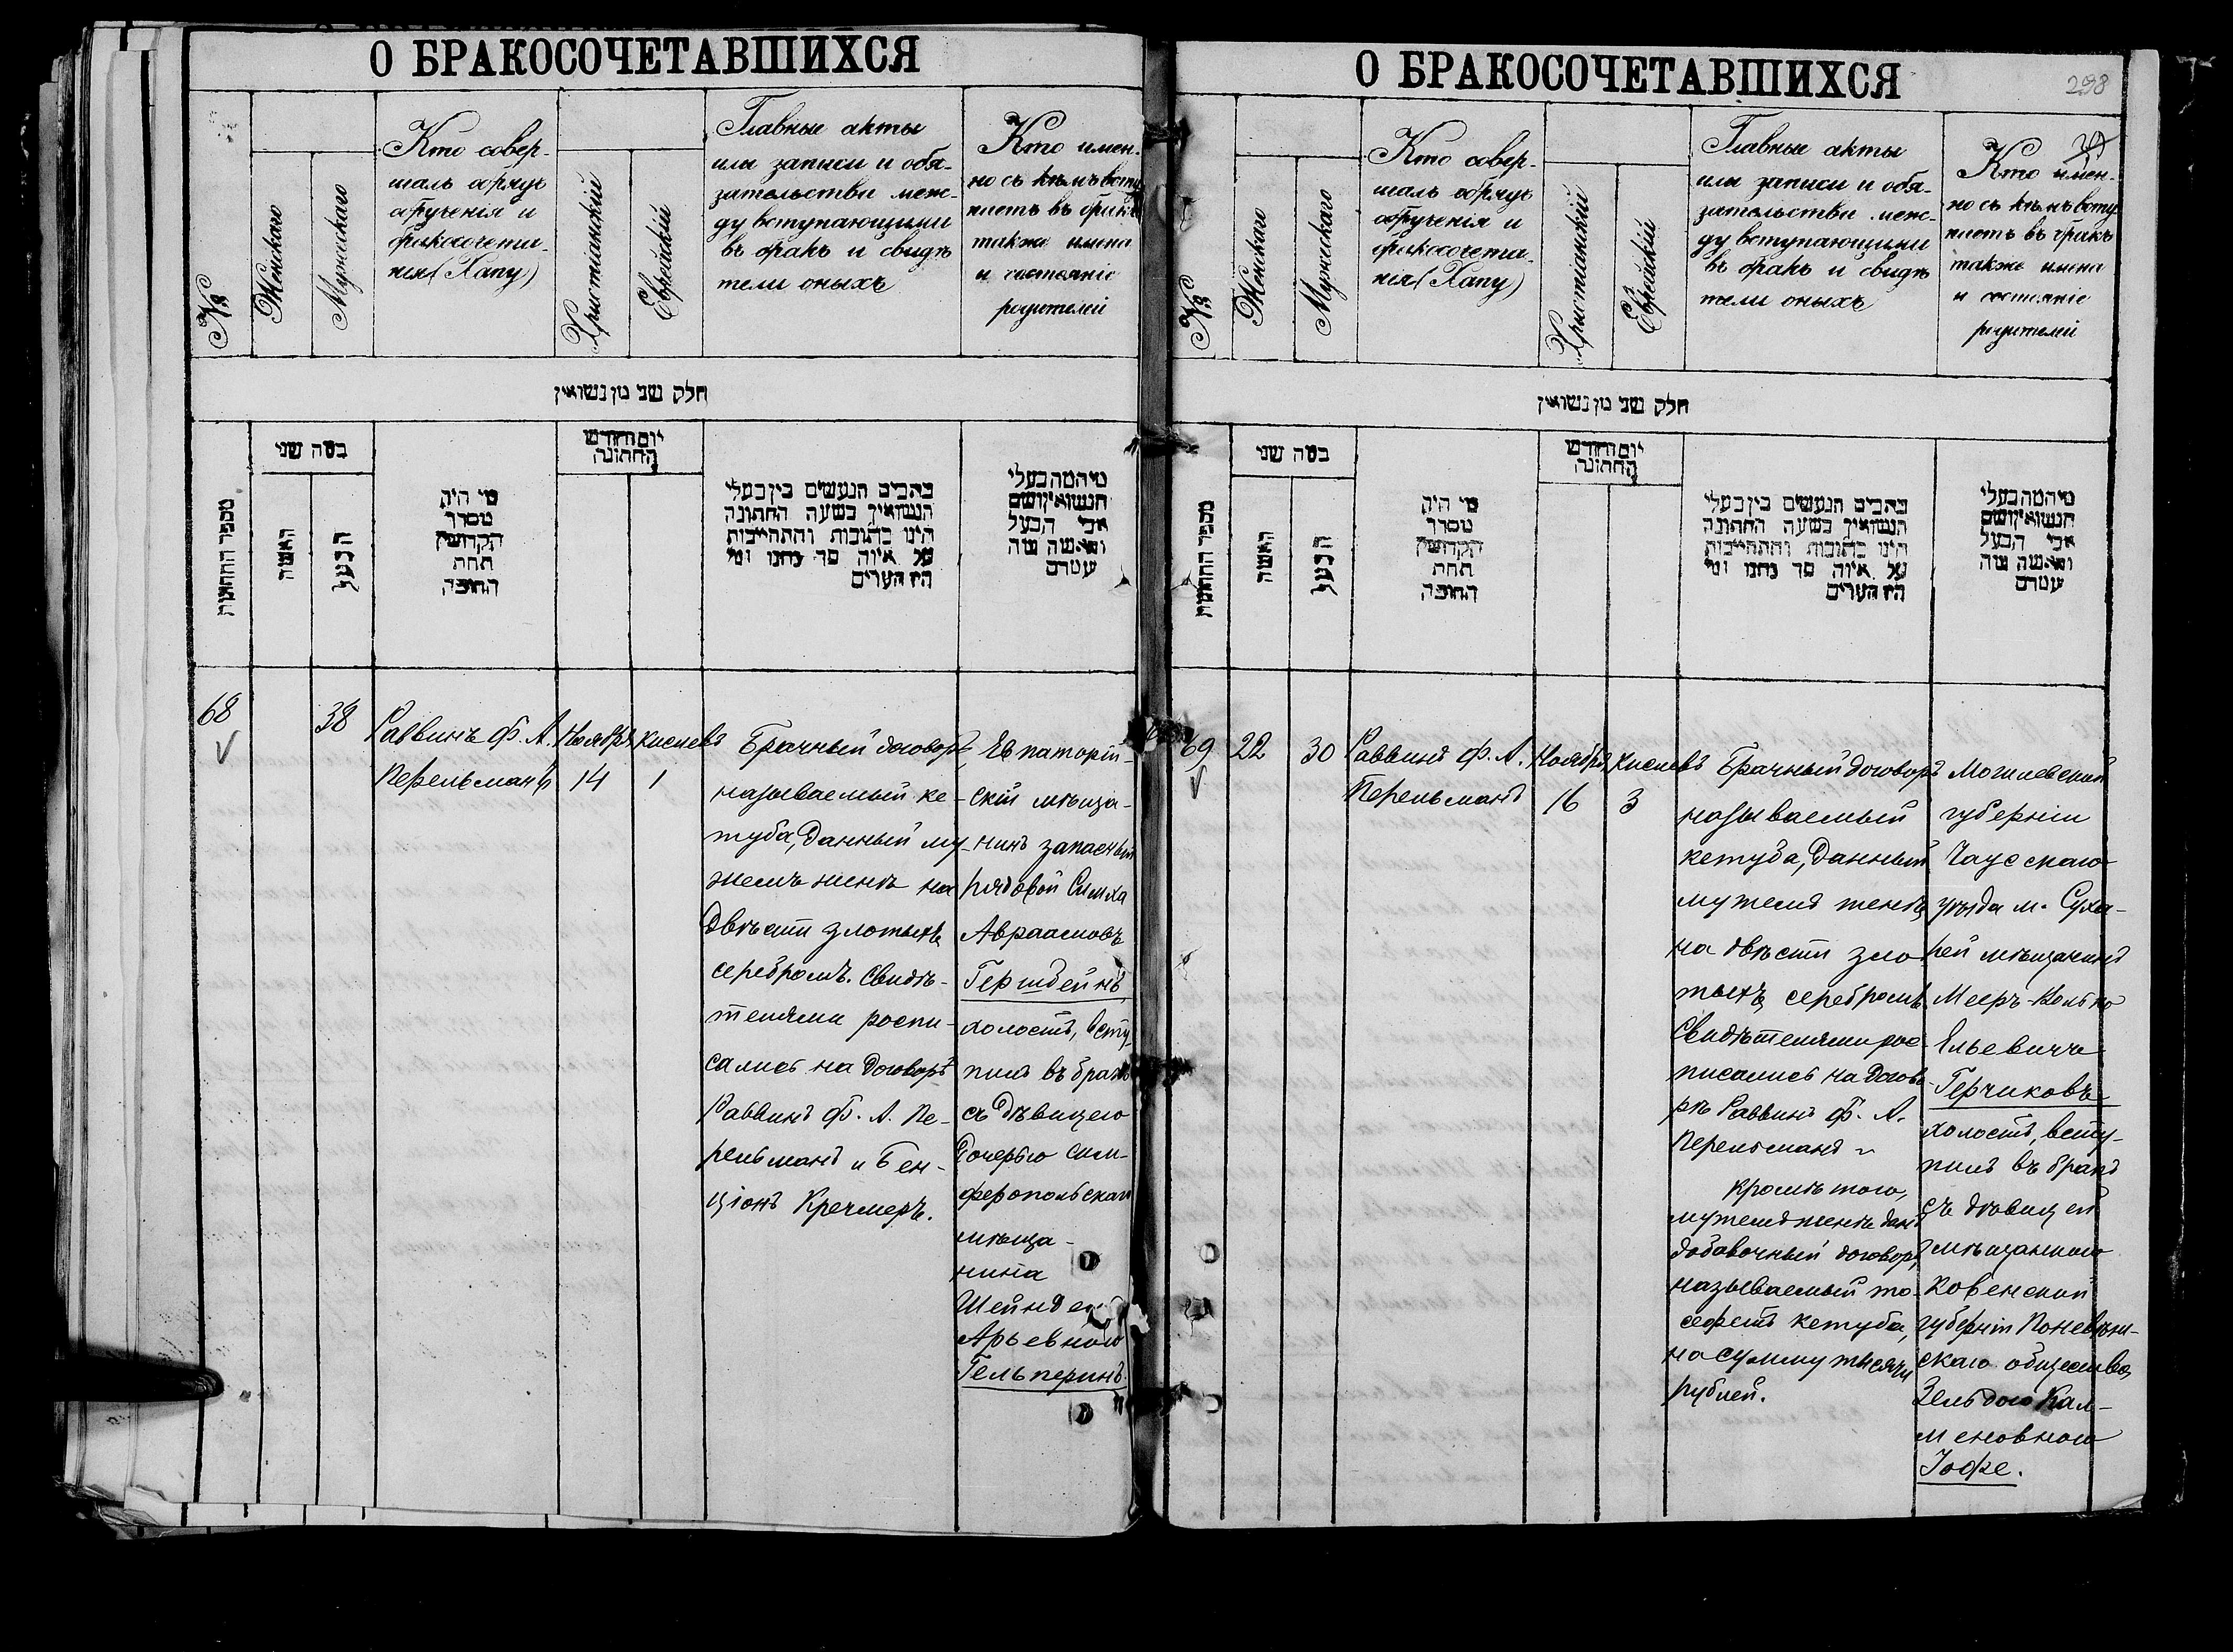 О БРАКОСОЧЕТАВШИХСЯ
№
Женскаго
Мужескаго
Кто совер-
шалъ обрядъ
обрученія и
бракосочета-
нія (Хапу)
Христіанскій
Еврейскій
Главные акты
или записи и обя-
зательства меж-
ду вступающими
въ бракъ и свидѣ
тели оныхъ
Кто имен-
но съ кѣмъ всту
паетъ въ бракъ
также имена
и состояніе
родителей
חלק שני מן נשואין
מספר החתונות
בסה שני
האשה
הבעל
מי היה
מסדר
הקדושין
תחת
החופה
יום וחודש
החתונה
כתבים הנעשים בין בעלי
הנשואין בשעה החתונה
הינו כתובות והתחייבות
על איזה סך נתנו ומי
הם העדים
מי המה בעלי
הנשואין ושם
אבי הבעל
והאשה מה
מעמדם
68
38
Раввинъ Ф. А.
Перельманъ
Ноября
14
Кислевъ
1
Брачный договоръ,
называемый ке-
туба, данный му-
жемъ женѣ на
двѣсти злотыхъ
серебромъ. Свидѣ-
телями роспи-
сались на договорѣ
Раввинъ Ф. А. Пе-
рельманъ и Бен-
ціонъ Кречмеръ.
Евпаторій-
скій мѣща-
нинъ запасный
рядовой Симха
Авраамовъ
Герштейнъ,
холостъ, всту
пилъ въ бракъ
съ дѣвицею
дочерью Сим-
феропольскаго
мѣща-
нина
Шейндею
Арьевною
Гельперинъ.
О БРАКОСОЧЕТАВШИХСЯ
298
№
Женскаго
Мужескаго
Кто совер-
шалъ обрядъ
обрученія и
бракосочета-
нія (Хапу)
Христіанскій
Еврейскій
Главные акты
или записи и обя-
зательства меж-
ду вступающими
въ бракъ и свидѣ
тели оныхъ
Кто имен-
но съ кѣмъ всту
паетъ въ бракъ
также имена
и состояніе
родителей
חלק שני מן נשואין
מספר החתונות
בסה שני
האשה
הבעל
מי היה
מסדר
הקדושין
תחת
החופה
יום וחודש
החתונה
כתבים הנעשים בין בעלי
הנשואין בשעה החתונה
הינו כתובות והתחייבות
על איזה סך נתנו ומי
הם העדים
מי המה בעלי
הנשואין ושם
אבי הבעל
והאשה מה
מעמדם
69
22
30
Раввинъ Ф. А.
Перельманъ
Ноября
16
Кислевъ
3
Брачный договоръ
называемый
кетуба, данный
мужемъ женѣ
на двѣсти зло-
тыхъ серебромъ.
Свидѣтелями рос-
писались на догово-
рѣ Раввинъ Ф. А.
Перельманъ и
Кромѣ того,
мужемъ женѣ данъ
добавочный договоръ,
называемый то-
сефетъ кетуба,
на сумму тысячи
рублей.
Могилевской
губерніи
Чаусскаго
уѣзда м. Суха-
рей мѣщанинъ
Мееръ-Кольно
Ельевичъ
Герчиковъ
холостъ, всту-
пилъ въ бракъ
съ дѣвицей
мѣщанкою
Ковенской
губерніи Поневѣж-
скаго общества
Зельдою Кал-
меновною
Іоффе.